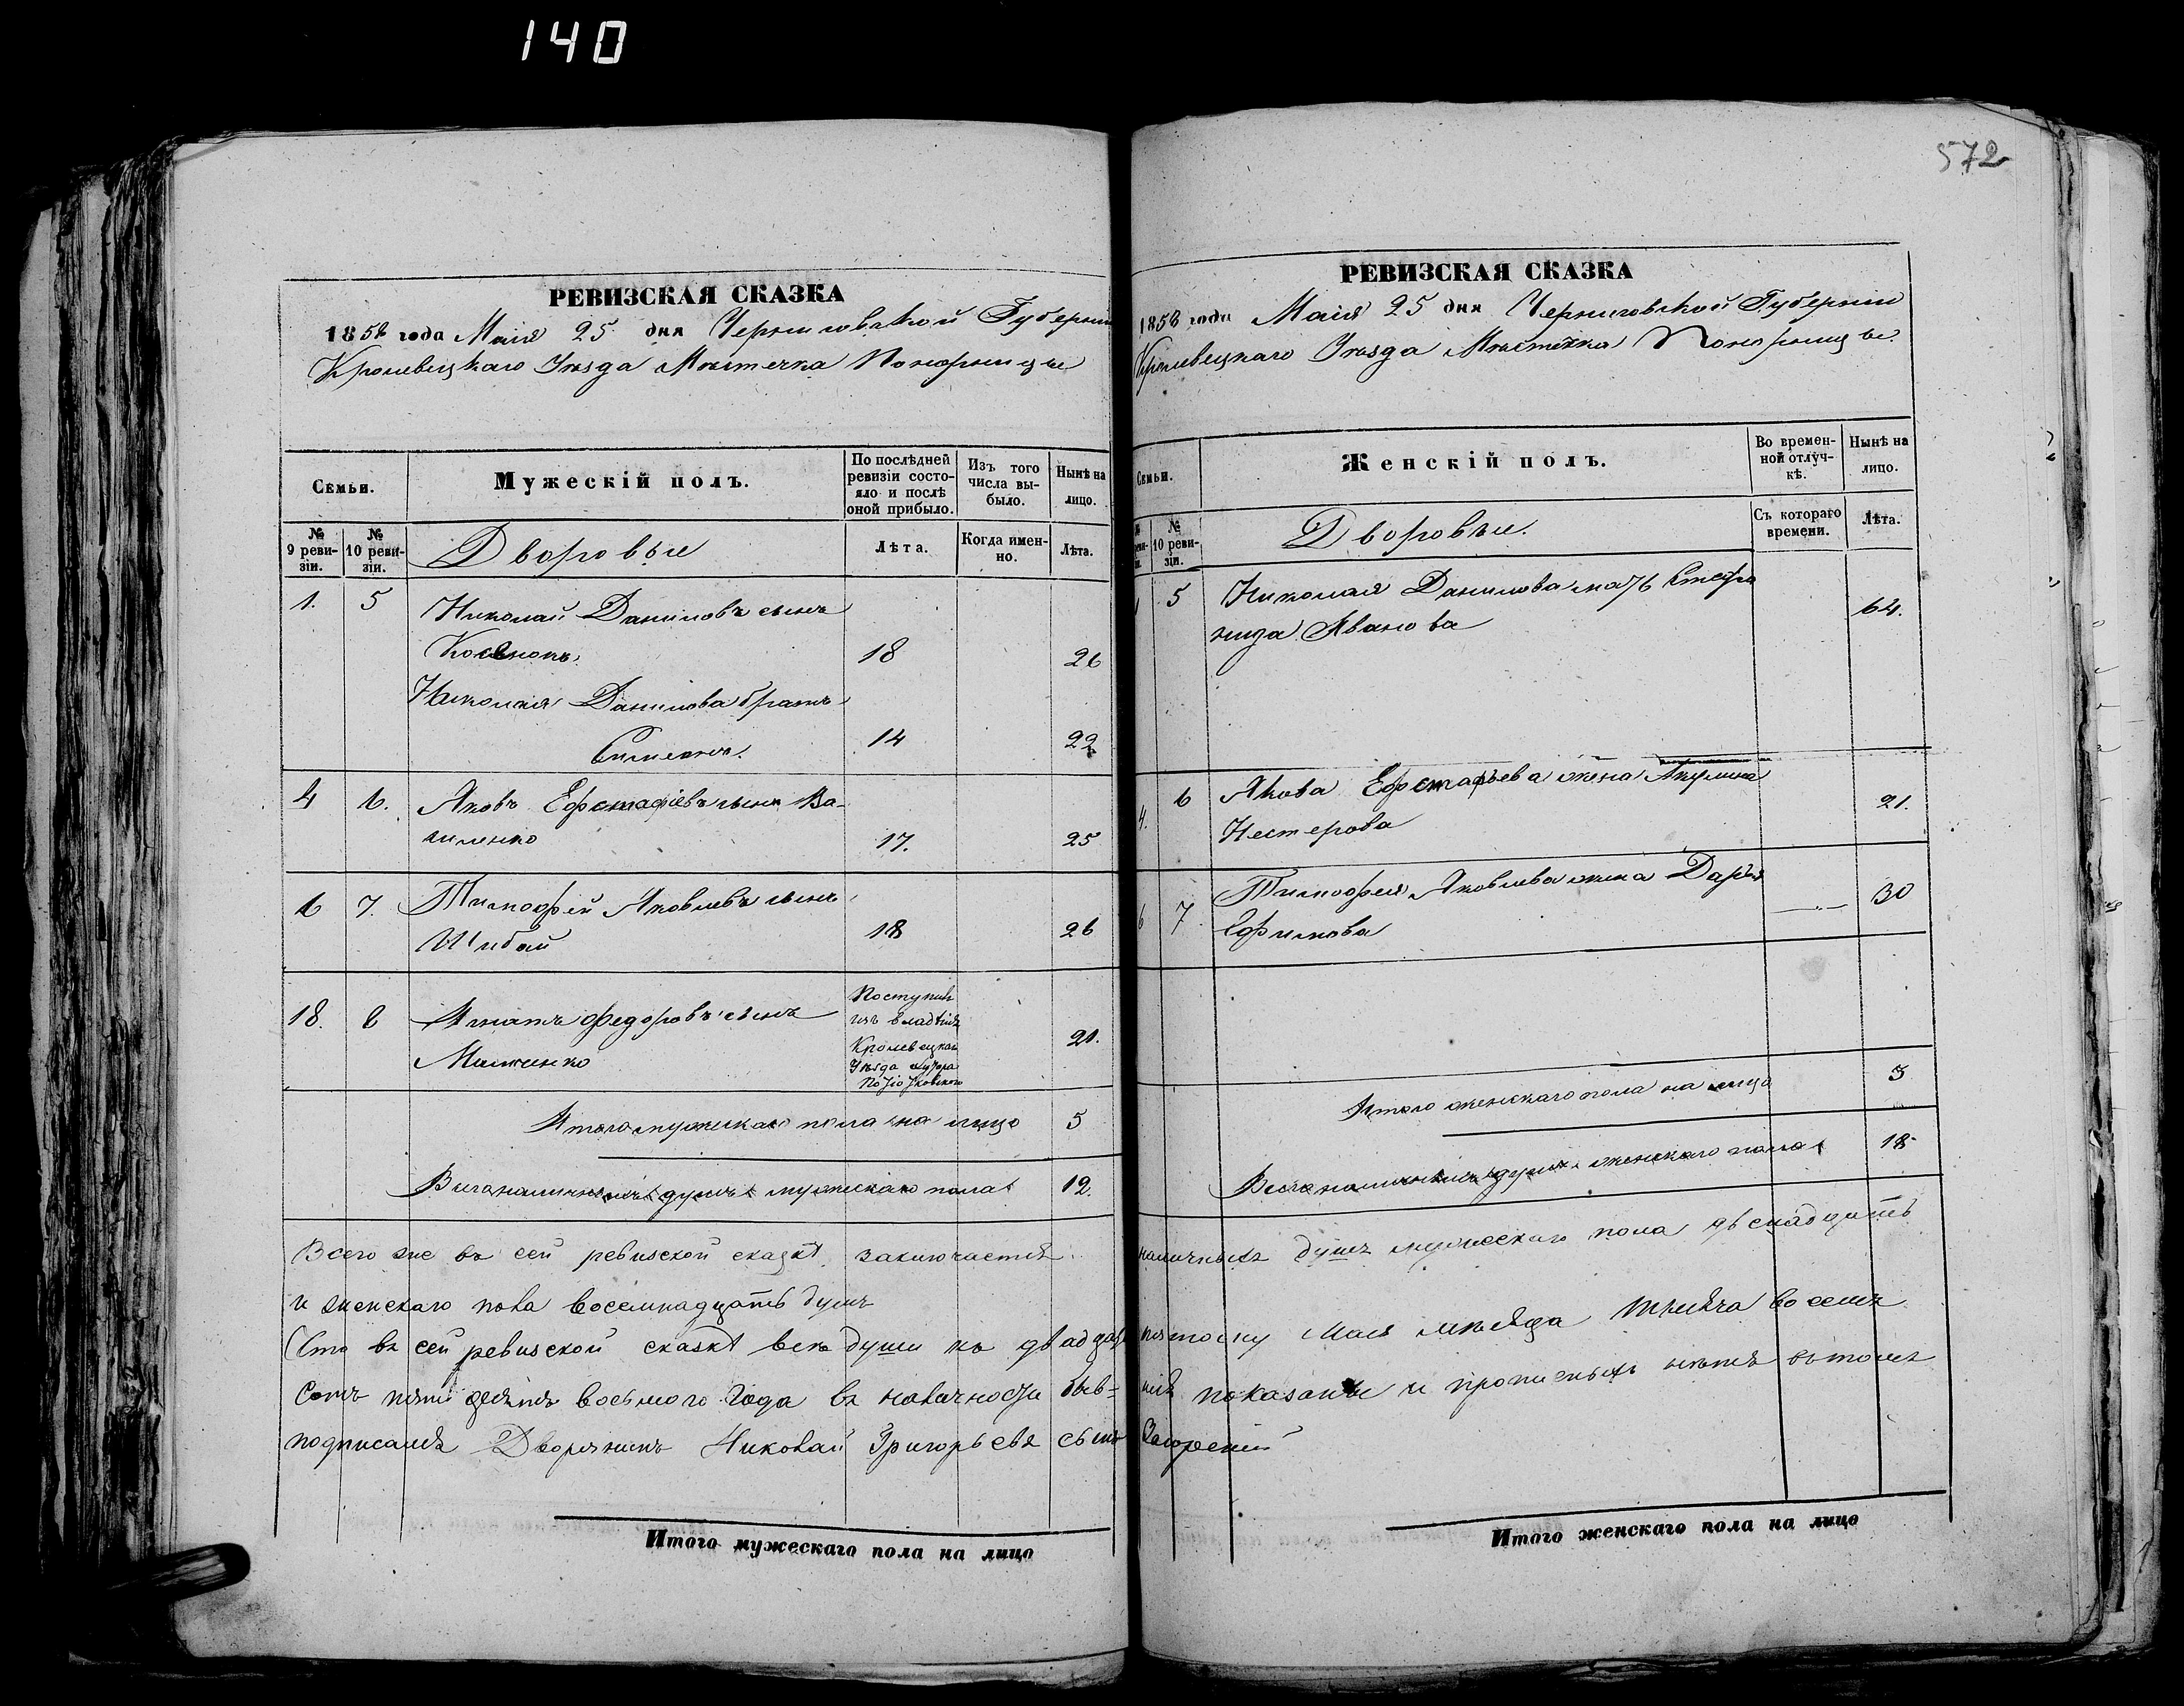 140
РЕВИЗСКАЯ СКАЗКА
1858 года Маія 25 дня Черниговской Губерніи
Кролевецкаго Уезда Мѣстечка Понорницы
Семьи.
Мужескій полъ.
По послѣдней ревизіи состояло и послѣ оной прибыло.
Изъ того числа выбыло.
Нынѣ на лицо.
№ 9 ревизіи.
№ 10 ревизіи.
Дворовые
Лѣта.
Когда именно.
Лѣта.
1. 5 Николай Даниловъ сынъ
18 26
Николая Данилова братъ
Симеонъ. 14 22
4 6. Яковъ Ефстафіевъ сынъ Ва-
силенко 17. 25
6 7. Тимофей Яковлевъ сынъ
Шибай 18 26
18. 8 Игнатъ Федоровъ сынъ
Поступилъ
изъ владѣнія
Кролевецкаго
Уѣзда хутора
21.
Итого мужескаго пола на лицо 5
Всего наличныхъ душъ мужескаго пола 12.
Всего же въ сей ревизской сказкѣ заключается
и женскаго пола восемнадцать душъ
Что въ сей ревизской сказкѣ всѣ души къ двадцать
сотъ пятидесятъ восьмого года въ наличности быв-
подписался Дворянинъ Николай Григорьевъ сынъ
Итого мужескаго пола на лицо
572
РЕВИЗСКАЯ СКАЗКА
1858 года Маія 25 дня Черниговской Губерніи
Кролевецкаго Уезда Мѣстечка Понорницы.
Семьи.
Женскій полъ.
Во временной отлучкѣ.
Нынѣ на лицо.
№ 10 ревизіи.
Дворовые.
Съ котораго времени.
Лѣта.
5 Николая Данилова мать Стефа
нида Иванова 64.
4. 6 Якова Ефстафьева жена Акулина
Нестерова 21.
6 7. Тимофея Яковлева жена Дарья
Ефимова 30
Итого женскаго пола на лицо 3
Всего наличныхъ душъ женскаго пола 18
наличныхъ душъ мужескаго пола двенадцать
пятому Мая мѣсяца тысяча восемъ
шія показаны и прописныхъ нѣтъ въ томъ
Итого женскаго пола на лицо